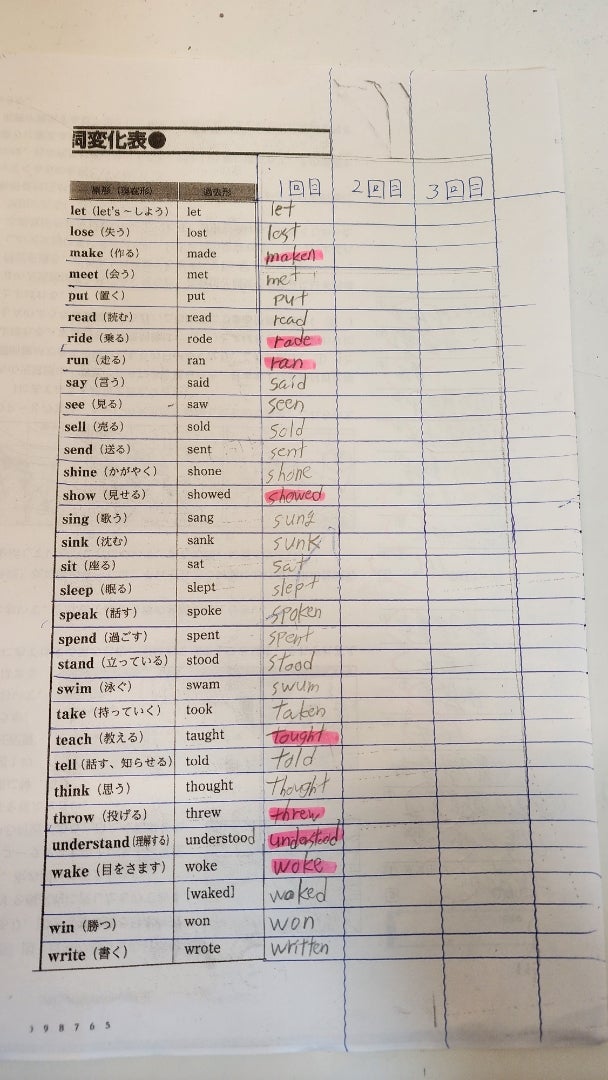 詞変化表●
原形（現在形） 過去形 1回目 2回目 3回目
let（let's～しよう） let let
lose（失う） lost lost
make（作る） made maken
meet（会う） met met
put（置く） put put
read（読む） read read
ride（乗る） rode rode
run（走る） ran ran
say（言う） said said
see（見る） saw seen
sell（売る） sold sold
send（送る） sent sent
shine（かがやく） shone shone
show（見せる） showed showed
sing（歌う） sang sung
sink（沈む） sank sunk
sit（座る） sat sat
sleep（眠る） slept slept
speak（話す） spoke spoken
spend（過ごす） spent spent
stand（立っている） stood stood
swim（泳ぐ） swam swum
take（持っていく） took taken
teach（教える） taught tought
tell（話す、知らせる） told told
think（思う） thought thought
throw（投げる） threw threw
understand（理解する） understood understood
wake（目をさます） woke woke
[waked] waked
win（勝つ） won won
write（書く） wrote written
9 8 7 6 5